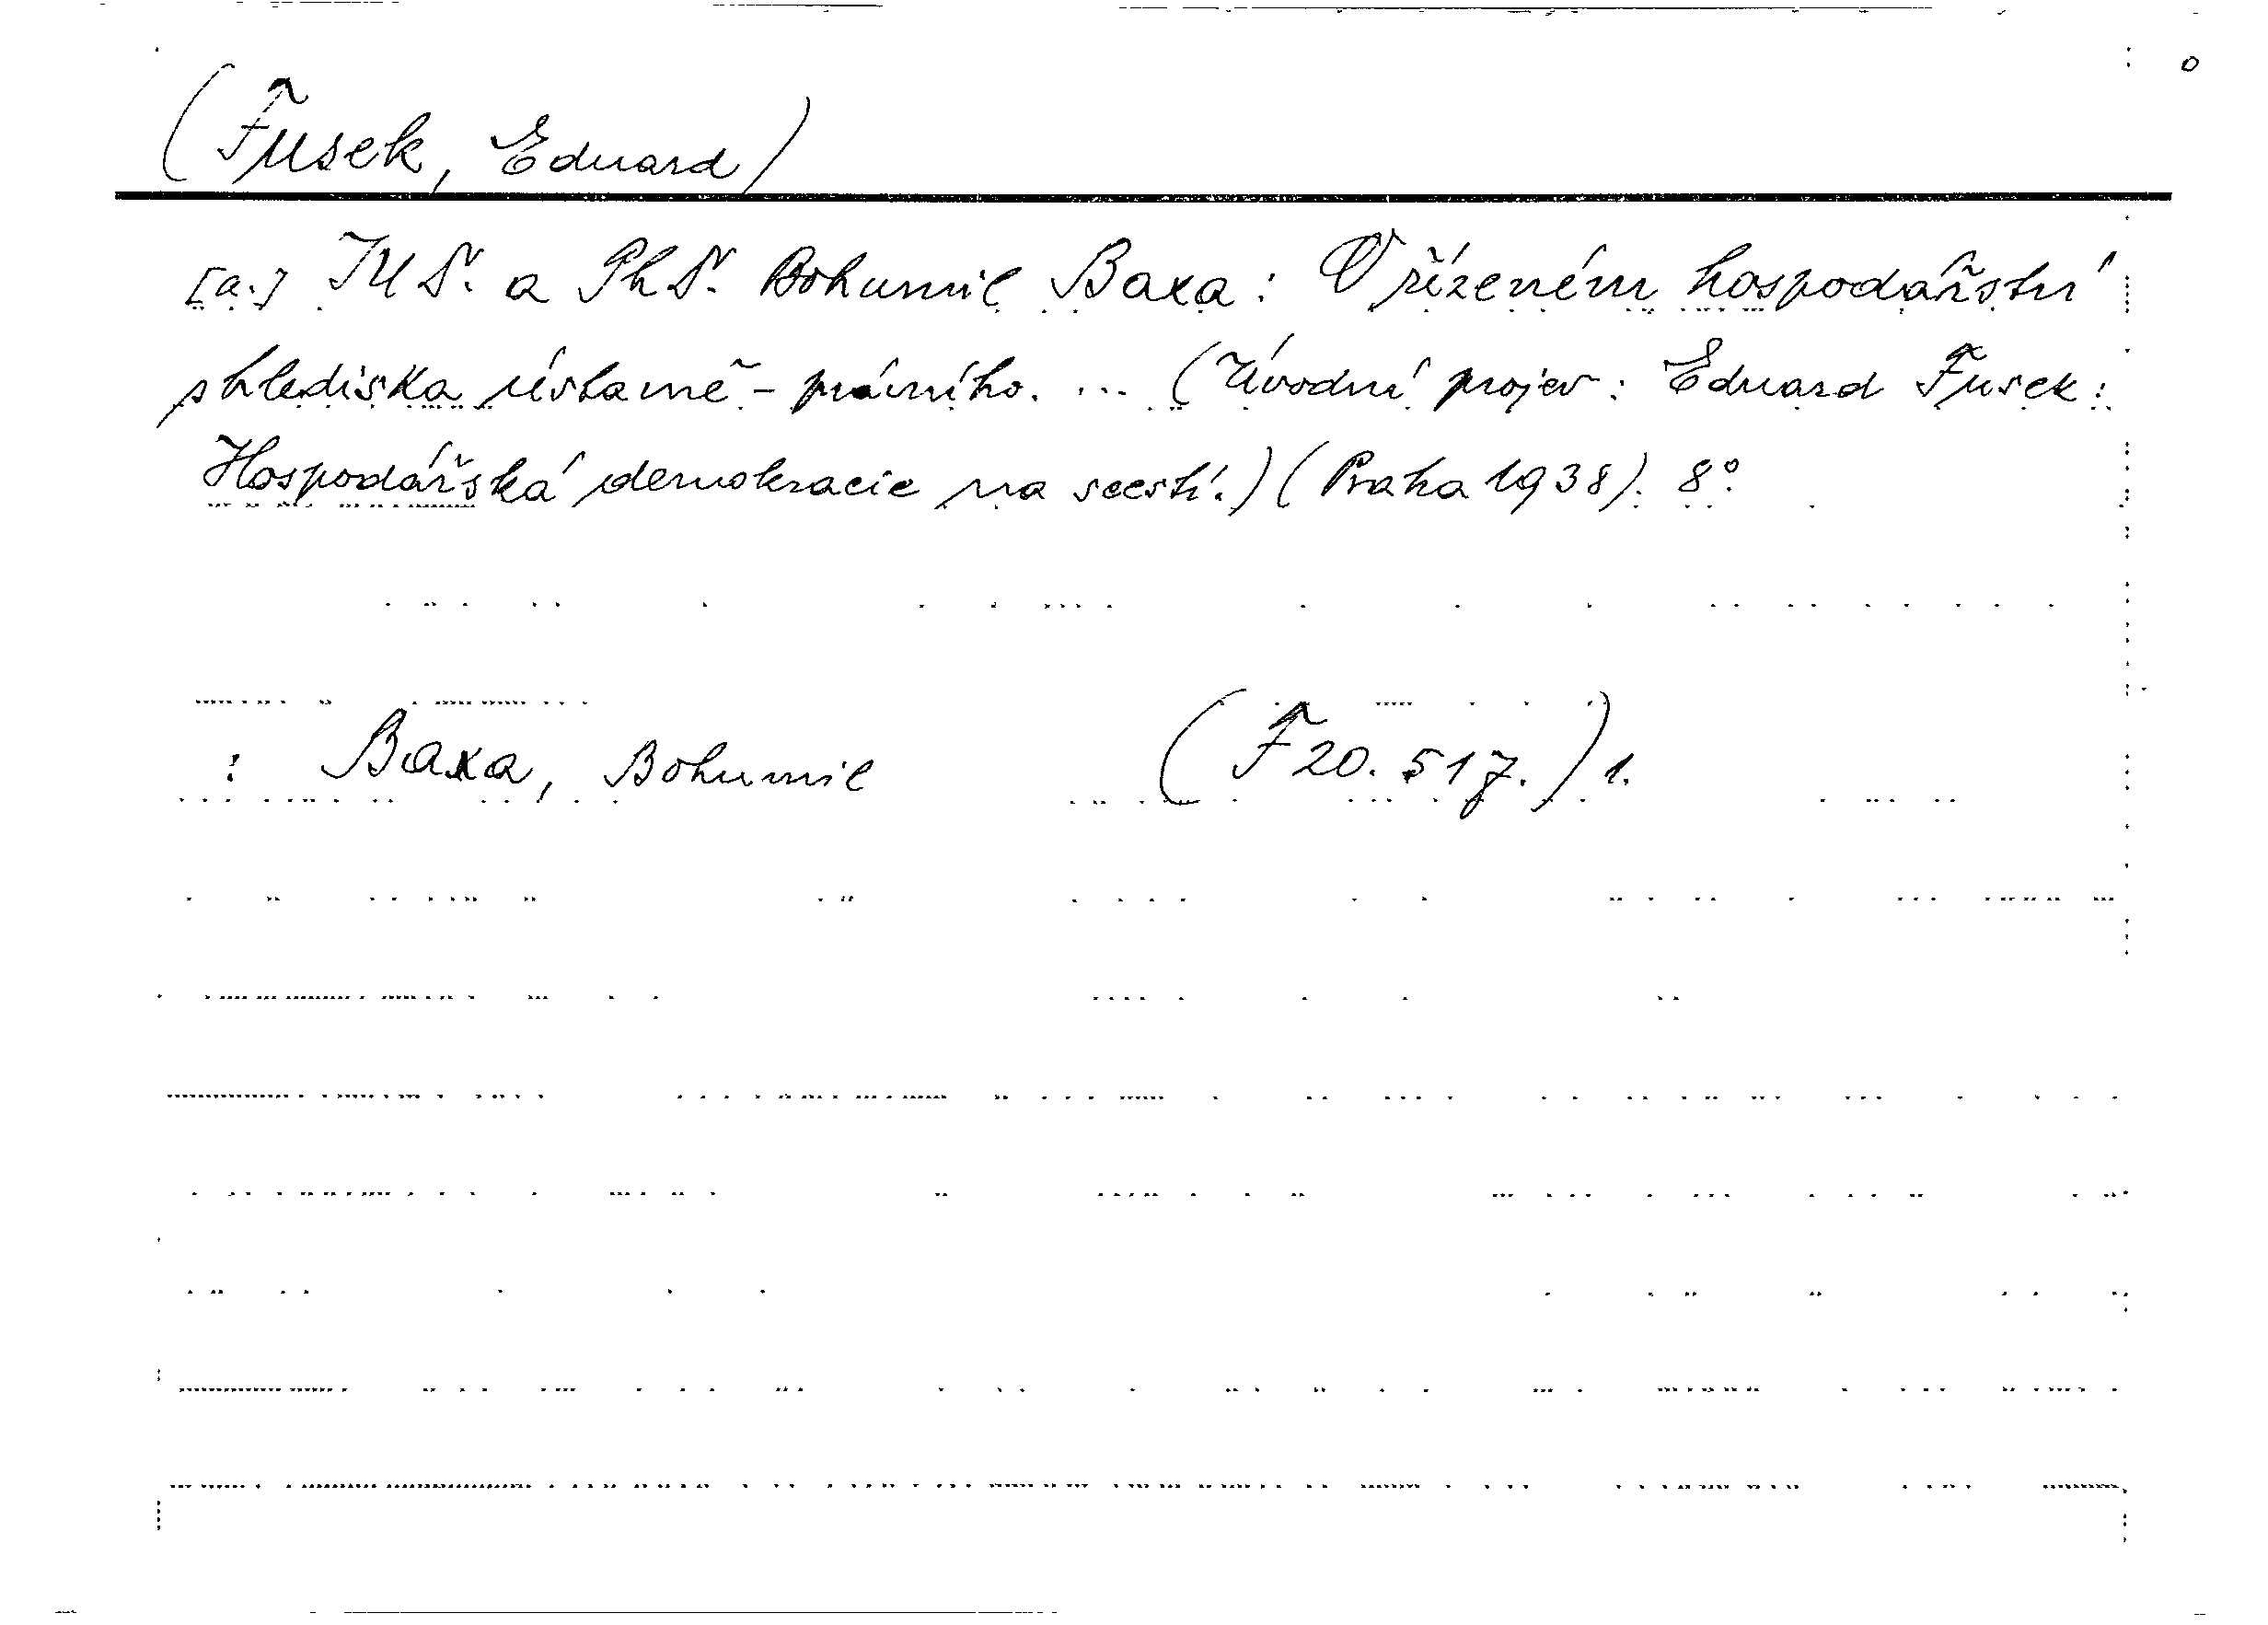 (Fusek, Eduard)
[a.] JUDr. a PhDr. Bohumil Baxa: O řízeném hospodářství
s hlediska ústavně-právního. ... (Úvodní projev: Eduard Fusek:
Hospodářská demokracie na scestí.) (Praha 1938). 8°.
: Baxa, Bohumil (F 20.517.) 1.